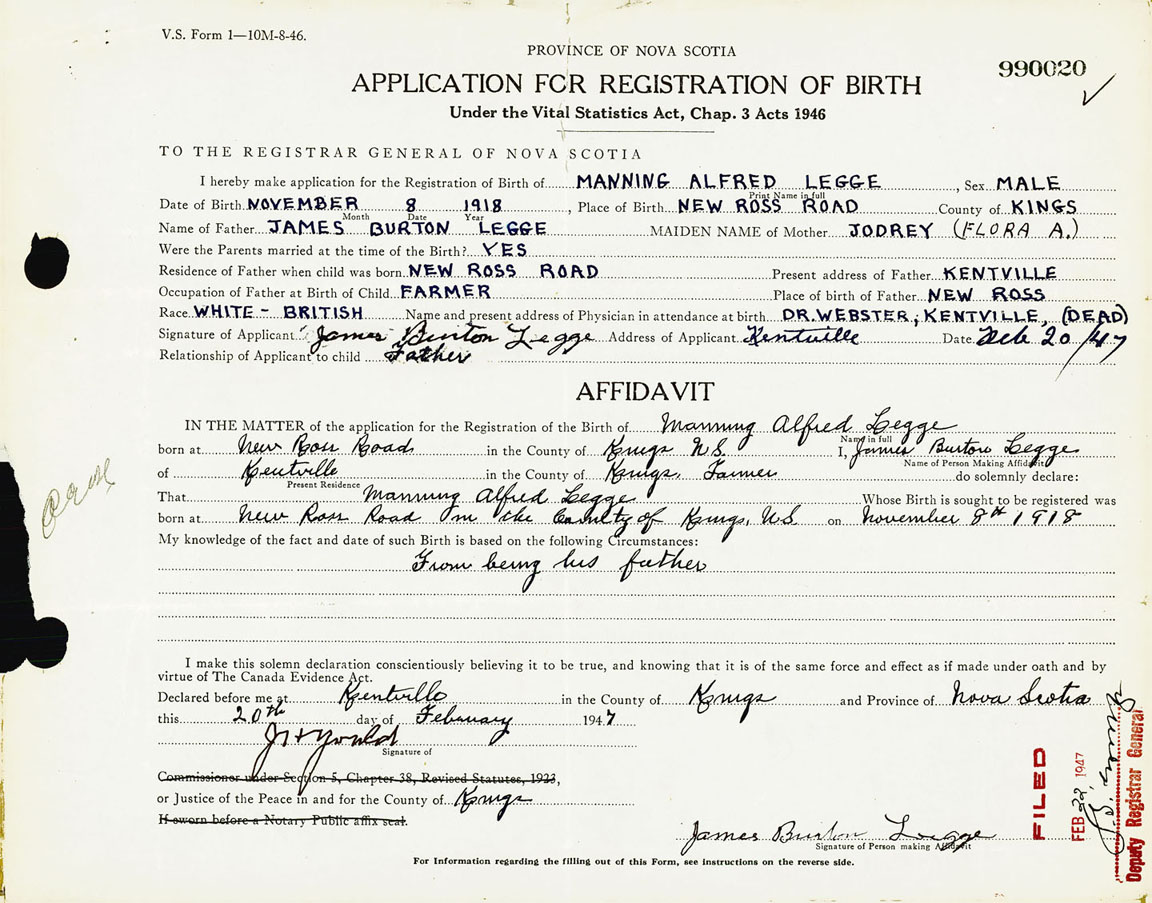 V.S. Form 1—10M-8-46.
PROVINCE OF NOVA SCOTIA
990020
APPLICATION FOR REGISTRATION OF BIRTH
Under the Vital Statistics Act, Chap. 3 Acts 1946
TO THE REGISTRAR GENERAL OF NOVA SCOTIA
I hereby make application for the Registration of Birth of MANNING ALFRED LEGGE, Sex MALE
Print Name in full
Date of Birth NOVEMBER 8 1918, Place of Birth NEW ROSS ROAD County of KINGS
Month Date Year
Name of Father JAMES BURTON LEGGE MAIDEN NAME of Mother JODREY (FLORA A.)
Were the Parents married at the time of the Birth? YES
Residence of Father when child was born NEW ROSS ROAD Present address of Father KENTVILLE
Occupation of Father at Birth of Child FARMER Place of birth of Father NEW ROSS
Race WHITE - BRITISH Name and present address of Physician in attendance at birth DR. WEBSTER, KENTVILLE, (DEAD)
Signature of Applicant James Burton Legge Address of Applicant Kentville Date Feb 20/47
Relationship of Applicant to child Father
AFFIDAVIT
IN THE MATTER of the application for the Registration of the Birth of Manning Alfred Legge
Name in full
born at New Ross Road in the County of Kings N.S. I, James Burton Legge
Name of Person Making Affidavit
of Kentville in the County of Kings, Farmer do solemnly declare:
Present Residence
That Manning Alfred Legge Whose Birth is sought to be registered was
born at New Ross Road in the County of Kings, N.S on November 8th 1918
My knowledge of the fact and date of such Birth is based on the following Circumstances:
From being his father
I make this solemn declaration conscientiously believing it to be true, and knowing that it is of the same force and effect as if made under oath and by
virtue of The Canada Evidence Act.
Declared before me at Kentville in the County of Kings and Province of Nova Scotia
this 20th day of February 1947
Signature of
Commissioner under Section 5, Chapter 38, Revised Statutes, 1923,
or Justice of the Peace in and for the County of Kings
If sworn before a Notary Public affix seal.
James Burton Legge
Signature of Person making Affidavit
For Information regarding the filling out of this Form, see instructions on the reverse side.
FILED
FEB 22 1947
Deputy Registrar General